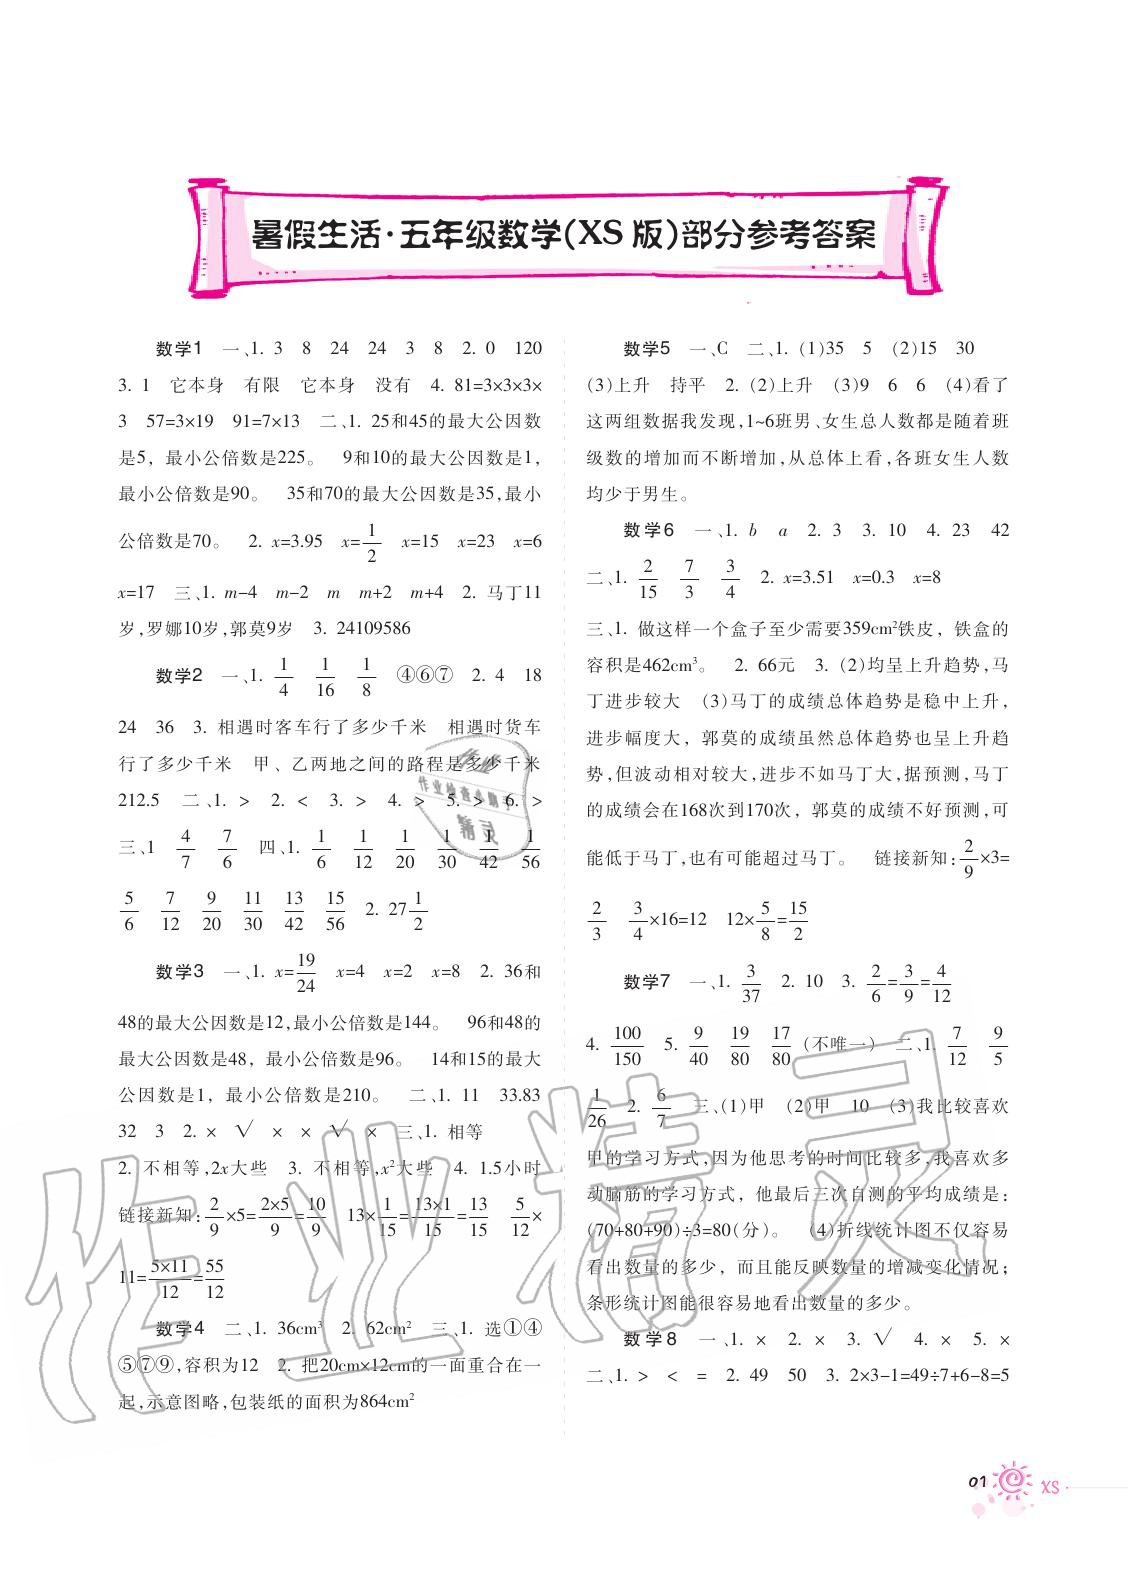 暑假生活·五年级数学(XS版)部分参考答案
数学1 一、1. 3 8 24 24 3 8 2. 0 120
3. 1 它本身 有限 它本身 没有 4. 81=3×3×3×
3 57=3×19 91=7×13 二、1. 25和45的最大公因数
是5，最小公倍数是225。 9和10的最大公因数是1，
最小公倍数是90。 35和70的最大公因数是35,最小
公倍数是70。 2. x=3.95 x=1/2 x=15 x=23 x=6
x=17 三、1. m-4 m-2 m m+2 m+4 2. 马丁11
岁,罗娜10岁,郭莫9岁 3. 24109586
数学2 一、1. 1/4 1/16 1/8 ④⑥⑦ 2. 4 18
24 36 3. 相遇时客车行了多少千米 相遇时货车
行了多少千米 甲、乙两地之间的路程是多少千米
212.5 二、1. > 2. < 3. > 4. > 5. > 6. >
三、1 4/7 7/6 四、1. 1/6 1/12 1/20 1/30 1/42 1/56
5/6 7/12 9/20 11/30 13/42 15/56 2. 27 1/2
数学3 一、1. x=19/24 x=4 x=2 x=8 2. 36和
48的最大公因数是12,最小公倍数是144。 96和48的
最大公因数是48，最小公倍数是96。 14和15的最大
公因数是1，最小公倍数是210。 二、1. 11 33.83
32 3 2. × √ × × √ × 三、1. 相等
2. 不相等,2x大些 3. 不相等,x²大些 4. 1.5小时
链接新知:2/9×5=2×5/9=10/9 13×1/15=13×1/15=13/15 5/12×
11=5×11/12=55/12
数学4 二、1. 36cm³ 2. 62cm² 三、1. 选①④
⑤⑦⑨,容积为12 2. 把20cm×12cm的一面重合在一
起,示意图略,包装纸的面积为864cm²
数学5 一、C 二、1. (1)35 5 (2)15 30
(3)上升 持平 2. (2)上升 (3)9 6 6 (4)看了
这两组数据我发现,1~6班男、女生总人数都是随着班
级数的增加而不断增加,从总体上看,各班女生人数
均少于男生。
数学6 一、1. b a 2. 3 3. 10 4. 23 42
二、1. 2/15 7/3 3/4 2. x=3.51 x=0.3 x=8
三、1. 做这样一个盒子至少需要359cm²铁皮，铁盒的
容积是462cm³。 2. 66元 3. (2)均呈上升趋势,马
丁进步较大 (3)马丁的成绩总体趋势是稳中上升，
进步幅度大，郭莫的成绩虽然总体趋势也呈上升趋
势,但波动相对较大,进步不如马丁大,据预测,马丁
的成绩会在168次到170次，郭莫的成绩不好预测,可
能低于马丁,也有可能超过马丁。 链接新知:2/9×3=
2/3 3/4×16=12 12×5/8=15/2
数学7 一、1. 3/37 2. 10 3. 2/6=3/9=4/12
4. 100/150 5. 9/40 19/80 17/80 (不唯一) 二、1. 7/12 9/5
1/26 2. 6/7 三、(1)甲 (2)甲 10 (3)我比较喜欢
甲的学习方式,因为他思考的时间比较多,我喜欢多
动脑筋的学习方式，他最后三次自测的平均成绩是:
(70+80+90)÷3=80(分)。 (4)折线统计图不仅容易
看出数量的多少，而且能反映数量的增减变化情况；
条形统计图能很容易地看出数量的多少。
数学8 一、1. × 2. × 3. √ 4. × 5. ×
二、1. > < = 2. 49 50 3. 2×3-1=49÷7+6-8=5
作业检查小助手
精灵
作业精灵
01 XS